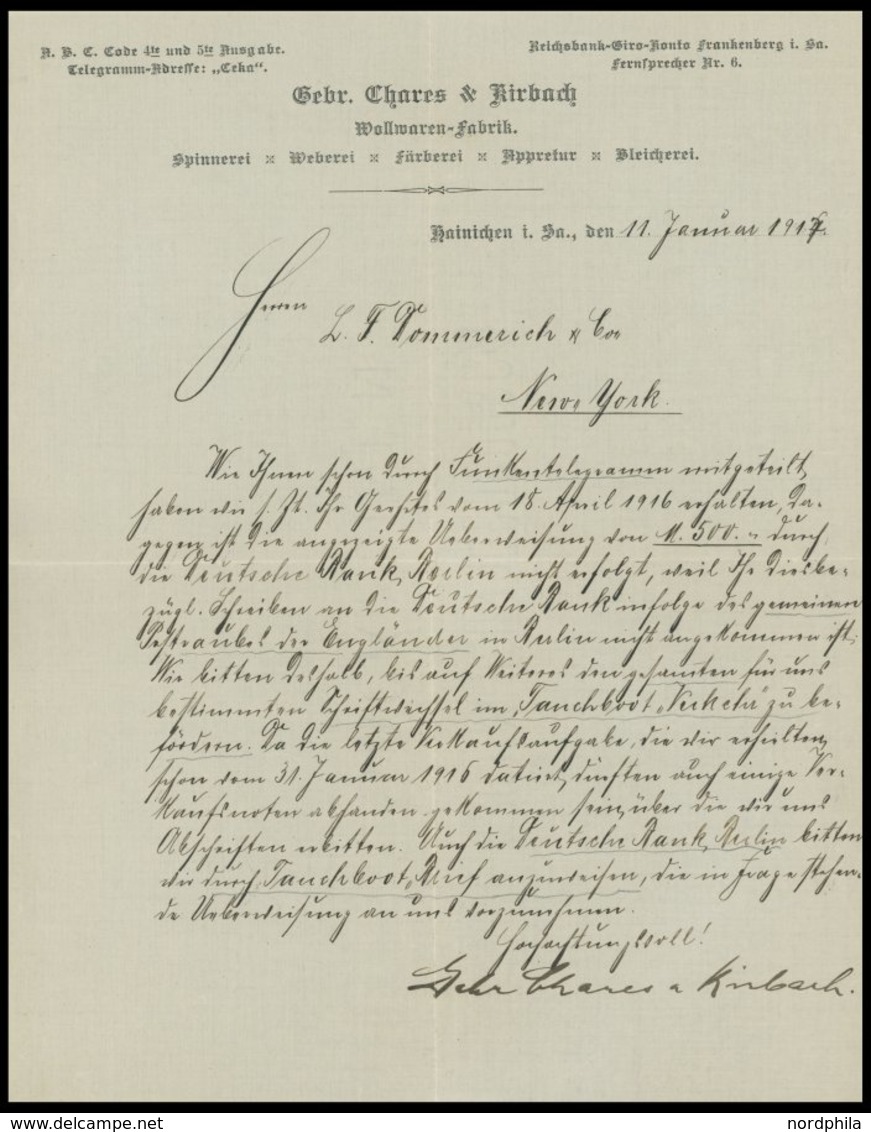 A. B. C. Code 4te und 5te Ausgabe.
Telegramm-Adresse: „Ceka“.
Reichsbank-Giro-Konto Frankenberg i. Sa.
Fernsprecher Nr. 6.
Gebr. Chares & Kirbach
Wollwaren-Fabrik.
Spinnerei × Weberei × Färberei × Appretur × Bleicherei.
Hainichen i. Sa., den 11. Januar 1917.
Herren
L. F. Dommerich & Co.
New-York.
Wie Ihnen schon durch Funkentelegramm mitgeteilt,
haben wir s. Zt. Ihr Geehrtes vom 18. April 1916 erhalten, da-
gegen ist die angezeigte Ueberweisung von M. 500.- durch
die Deutsche Bank, Berlin nicht erfolgt, weil Ihr diesbe-
zügl. Schreiben an die Deutsche Bank infolge des gemeinen
Postraubes der Engländer in Berlin nicht angekommen ist.
Wir bitten deshalb, bis auf Weiteres den gesamten für uns
bestimmten Schriftwechsel im „Tauchboot-Verkehr“ zu be-
fördern. Da die letzte Verkaufsaufgabe, die wir erhielten,
schon vom 31. Januar 1916 datiert, dürften auch einige Ver-
kaufsnoten abhanden gekommen sein, über die wir uns
Abschriften erbitten. Auch die Deutsche Bank, Berlin bitten
wir durch „Tauchboot-Brief“ anzuweisen, die in Frage stehen-
de Ueberweisung an uns vorzunehmen.
Hochachtungsvoll!
Gebr Chares & Kirbach.
www.delcampe.net
nordphila